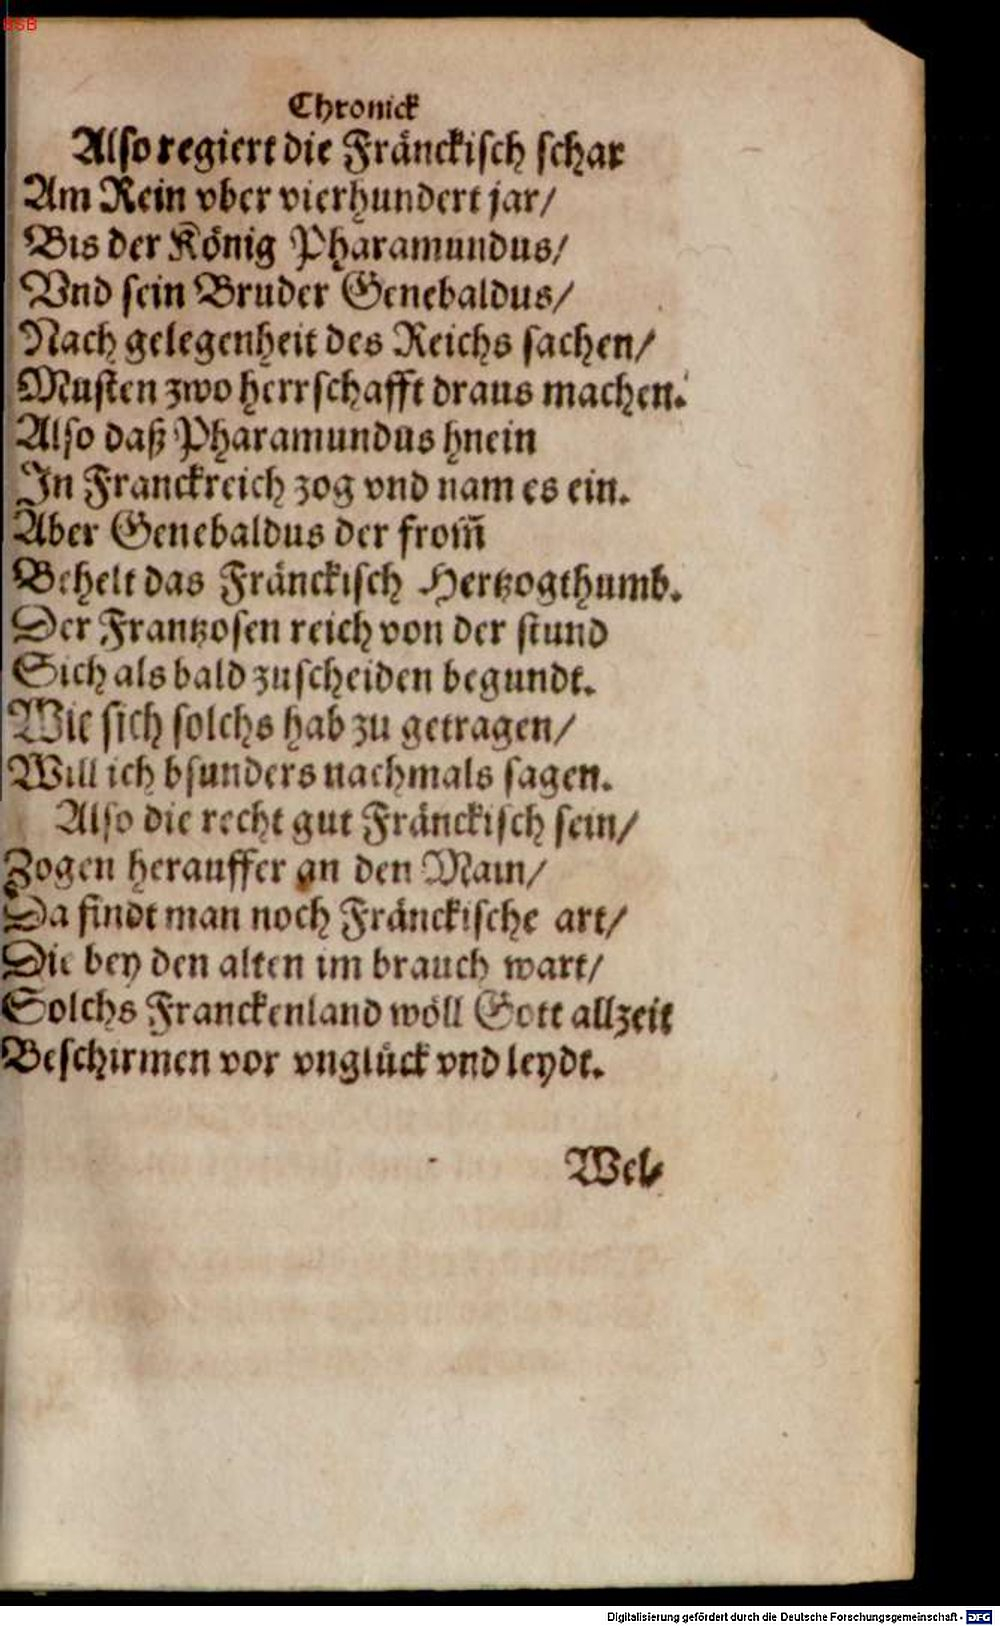 BSB
Chronick
Also regiert die Fränckisch schar
Am Rein vber vierhundert jar/
Bis der König Pharamundus/
Vnd sein Bruder Genebaldus/
Nach gelegenheit des Reichs sachen/
Musten zwo herrschafft draus machen.
Also daß Pharamundus hnein
In Franckreich zog vnd nam es ein.
Aber Genebaldus der from̃
Behelt das Fränckisch Hertzogthumb.
Der Frantzosen reich von der stund
Sich als bald zuscheiden begundt.
Wie sich solchs hab zu getragen/
Will ich bsunders nachmals sagen.
Also die recht gut Fränckisch sein/
Zogen herauffer an den Main/
Da findt man noch Fränckische art/
Die bey den alten im brauch wart/
Solchs Franckenland wöll Gott allzeit
Beschirmen vor vnglück vnd leydt.
Wel-
Digitalisierung gefördert durch die Deutsche Forschungsgemeinschaft - DFG